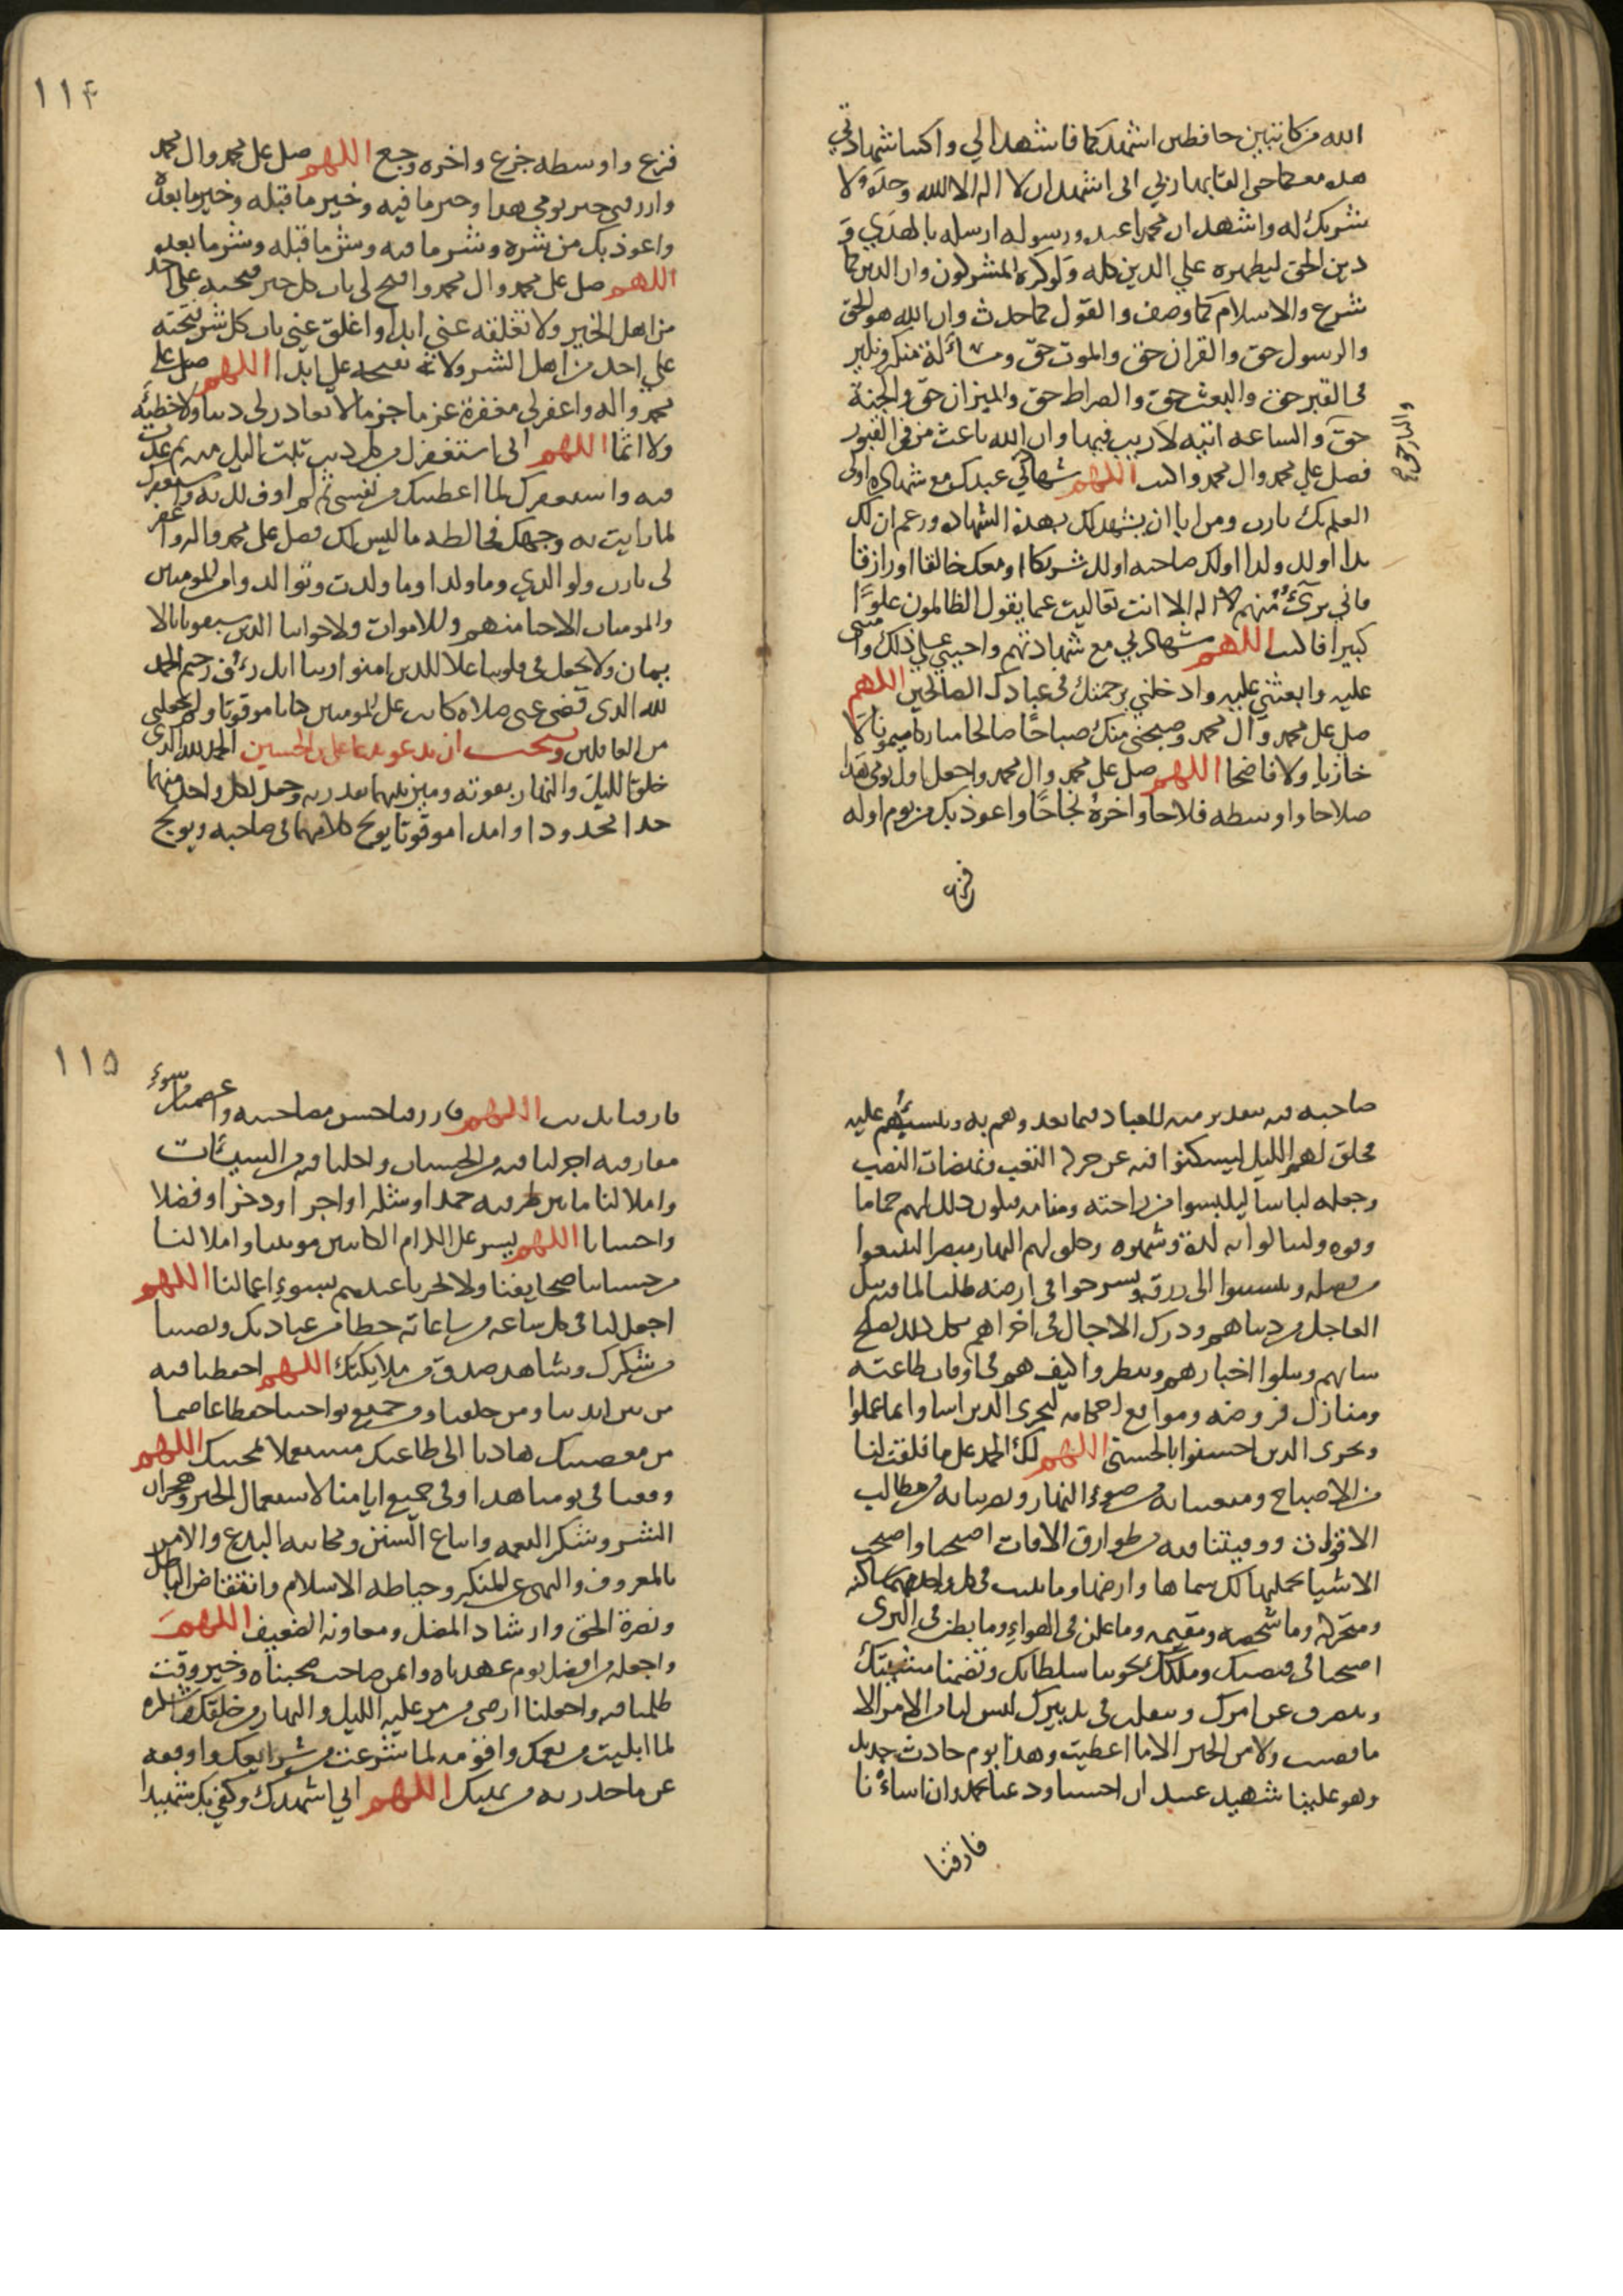 الله من كاتبين حافظين اشهدكما فاشهدا لي واكتبا شهادتي
هذه معكما حتى القا بها ربي اني اشهد ان لا اله الا الله وحده لا
شريك له واشهد ان محمدا عبده ورسوله ارسله بالهدي و
دين الحق ليظهره علي الدين كله ولو كره المشركون وان الدين كما
شرع والاسلام كما وصف والقول كما حدث وان الله هو الحق
والرسول حق والقران حق والموت حق ومسائلة منكر ونكير
في القبر حق والبعث حق والصراط حق والميزان حق والجنة
حق والساعه اتيه لا ريب فيها وان الله باعث من في القبور
والنار حق
فصل علي محمد وال محمد واكتب اللهم شهادتي عندك مع شهادة اولي
العلم بك يا رب ومن ابا ان يشهد لك بهذه الشهاده وزعم ان لك
ندا او لك ولدا او لك صاحبه او لك شريكا او معك خالقا او رازقا
فاني برئ منهم لا اله الا انت تعاليت عما يقول الظالمون علوا
كبيرا فاكتب اللهم شهادتي مع شهادتهم واحييني علي ذلك وامتني
عليه وابعثني عليه وادخلني برحمتك في عبادك الصالحين اللهم
صل على محمد وال محمد وصبحني منك صباحا صالحا مباركا ميمونا لا
خازيا ولا فاضحا اللهم صل على محمد وال محمد واجعل اول يومي هذا
صلاحا واوسطه فلاحا واخره نجاحا واعوذ بك من يوم اوله
فزع
١١٤
فزع واوسطه جزع واخره وجع اللهم صل على محمد وال محمد
وارزقني خير يومي هذا وخير ما فيه وخير ما قبله وخير ما بعده
واعوذ بك من شره وشر ما فيه وشر ما قبله وشر ما بعده
اللهم صل على محمد وال محمد وافتح لي باب كل خير فتحته على احد
من اهل الخير ولا تغلقه عني ابدا واغلق عني باب كل شر فتحته
علي احد من اهل الشر ولا تفتحه علي ابدا اللهم صل على
محمد واله واغفر لي مغفرة عزما جزما لا تغادر لي ذنبا ولا خطيئة
ولا اثما اللهم اني استغفرك من كل ذنب تبت اليك منه ثم عدت
فيه واستغفرك لما اعطيتك من نفسي ثم لم اوف لك به واستغفرك
لما رايت به وجهك فخالطه ما ليس لك فصل على محمد واله واغفر
لي يا رب ولوالدي وما ولدا وما ولدت وتوالدوا من المومنين
والمومنات الاحيا منهم والاموات ولاخواننا الذين سبقونا بالا
يمان ولا تجعل في قلوبنا غلا للذين امنوا ربنا انك رؤف رحيم الحمد
لله الذي قضى عني صلاه كانت على المومنين كتابا موقوتا ولم يجعلني
من الغافلين ويستحب ان يدعو بدعا علي بن الحسين الحمد لله الذي
خلق الليل والنهار بقوته وميز بينهما بقدرته وجعل لكل واحد منهما
حدا محدودا وامدا موقوتا يولج كلا منهما في صاحبه ويولج
صاحبه فيه بتقدير منه للعباد فيما يغذوهم به وينشيهم عليه
فخلق لهم الليل ليسكنوا فيه من حركات التعب ونهضات النصب
وجعله لباسا ليلبسوا من راحته ومنامه فيكون ذلك لهم جماما
وقوه ولينالوا به لذة وشهوه وخلق لهم النهار مبصرا ليبتغوا
من فضله وليتسببوا الى رزقه ويسرحوا في ارضه طلبا لما فيه نيل
العاجل من دنياهم ودرك الاجال في اخراهم بكل ذلك يصلح
شانهم ويبلوا اخبارهم وينظر كيف هم في اوقات طاعته
ومنازل فروضه ومواقع احكامه ليجزي الذين اساوا بما عملوا
ويجزي الذين احسنوا بالحسنى اللهم لك الحمد على ما فلقت لنا
من الاصباح ومتعتنا به من ضوء النهار وبصرتنا به من مطالب
الاقوات ووقيتنا فيه من طوارق الافات اصبحنا واصبحت
الاشيا بجملتها لك سماها وارضها وما بثثت في كل واحد منهما ساكنه
ومتحركه وما شخصه ومقيمه وما علن في الهواء وما بطن في الثرى
اصبحنا في قبضتك وملكك يحوينا سلطانك وتضمنا مشيتك
ونتصرف عن امرك ونتقلب في تدبيرك ليس لنا من الامر الا
ما قضيت ولا من الخير الا ما اعطيت وهذا يوم حادث جديد
وهو علينا شهيد عتيد ان احسنا ودعنا بحمد وان اسائنا
فارقنا
١١٥
فارقنا بذنب اللهم فارزقنا حسن مصاحبته واعصمنا من سوء
مفارقته اجزل لنا فيه من الحسنات واخلنا فيه من السيئات
واملا لنا ما بين طرفيه حمدا وشكرا واجرا وذخرا وفضلا
واحسانا اللهم يسر على الكرام الكاتبين موونتنا واملا لنا
من حسناتنا صحايفنا ولا تخزنا عندهم بسوء اعمالنا اللهم
اجعل لنا في كل ساعه من ساعاته حظا من عبادتك ونصيبا
من شكرك وشاهد صدق من ملايكتك اللهم احفظنا فيه
من بين ايدينا ومن خلفنا ومن جميع نواحينا حفظا عاصما
من معصيتك هاديا الى طاعتك مستعملا لمحبتك اللهم
وفقنا في يومنا هذا وفي جميع ايامنا لاستعمال الخير وهجران
الشر وشكر النعمه واتباع السنن ومجانبه البدع والامر
بالمعروف والنهي عن المنكر وحياطه الاسلام وانتقاض الباطل
ونصرة الحق وارشاد المضل ومعاونه الضعيف اللهم
واجعله من افضل يوم عهدناه وايمن صاحب صحبناه وخير وقت
ظللنا فيه واجعلنا ارضى من مر عليه الليل والنهار من خلقك واشكره
لما ابليت من نعمك واقومه لما شرعت من شرايعك واوقفه
عن ما حذرت من نهيك اللهم اني اشهدك وكفي بك شهيدا